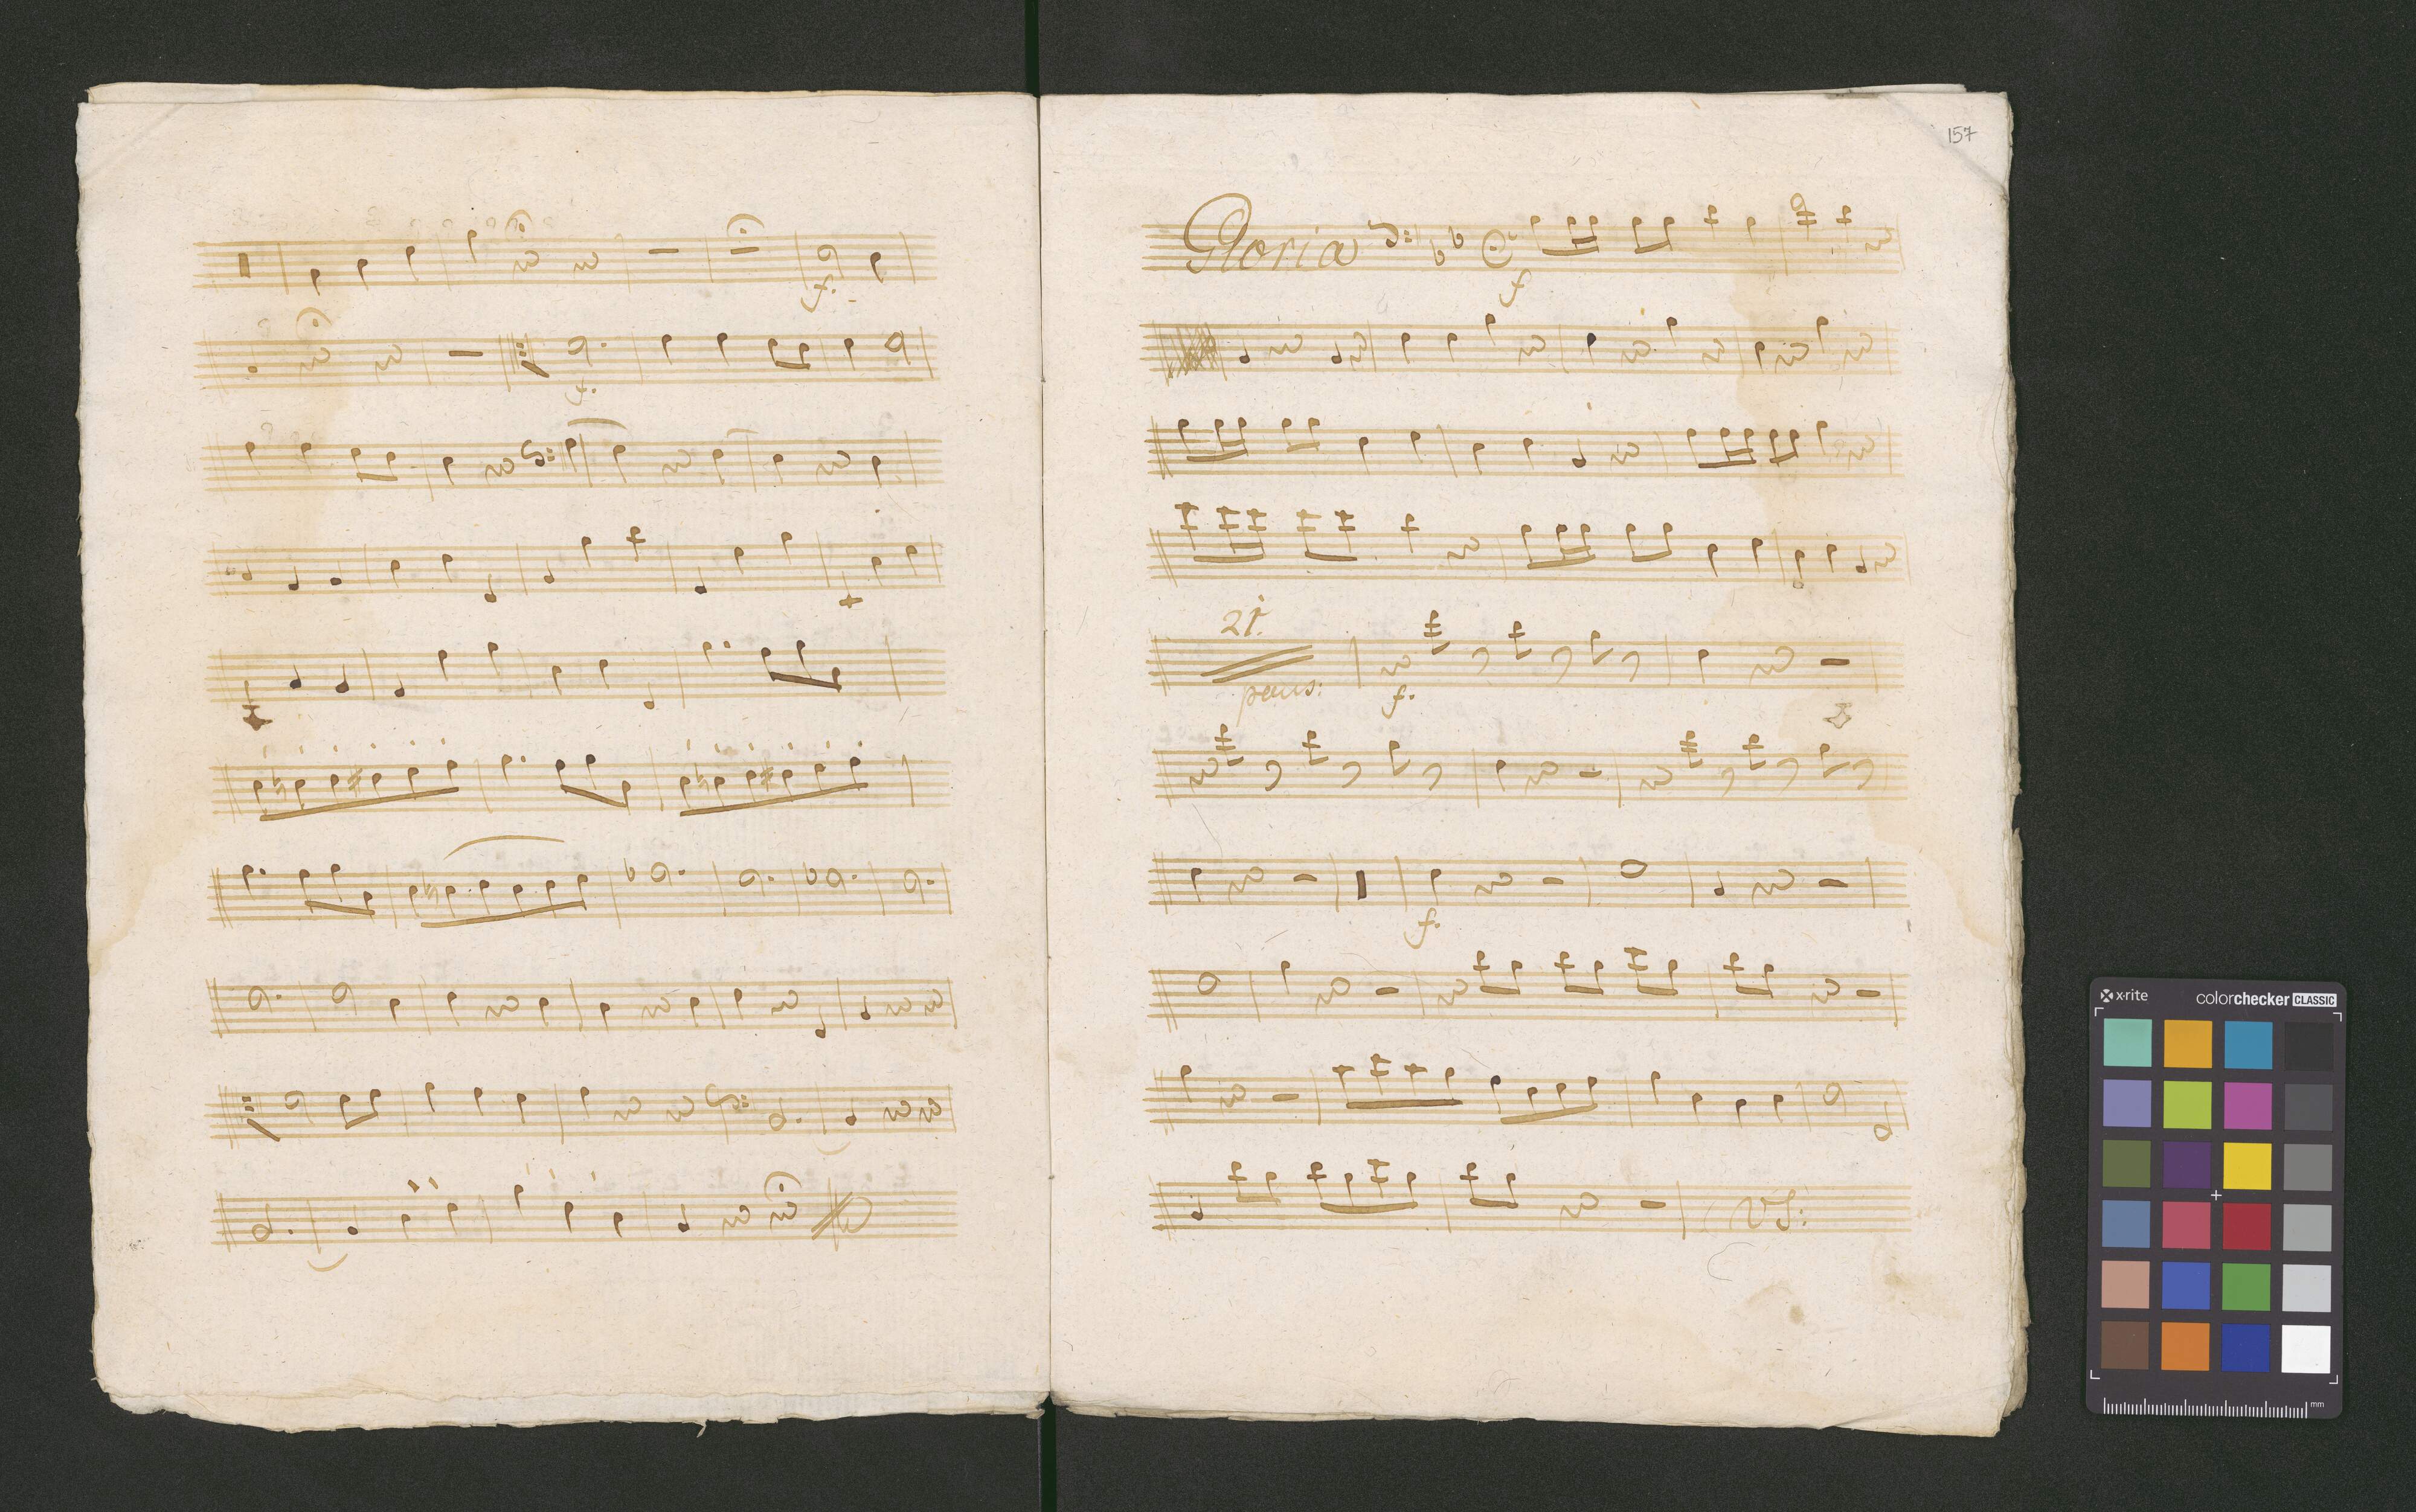 f.
f.
157
Gloria
f
21.
paus:
f.
f.
VS:
x·rite
colorchecker CLASSIC
mm